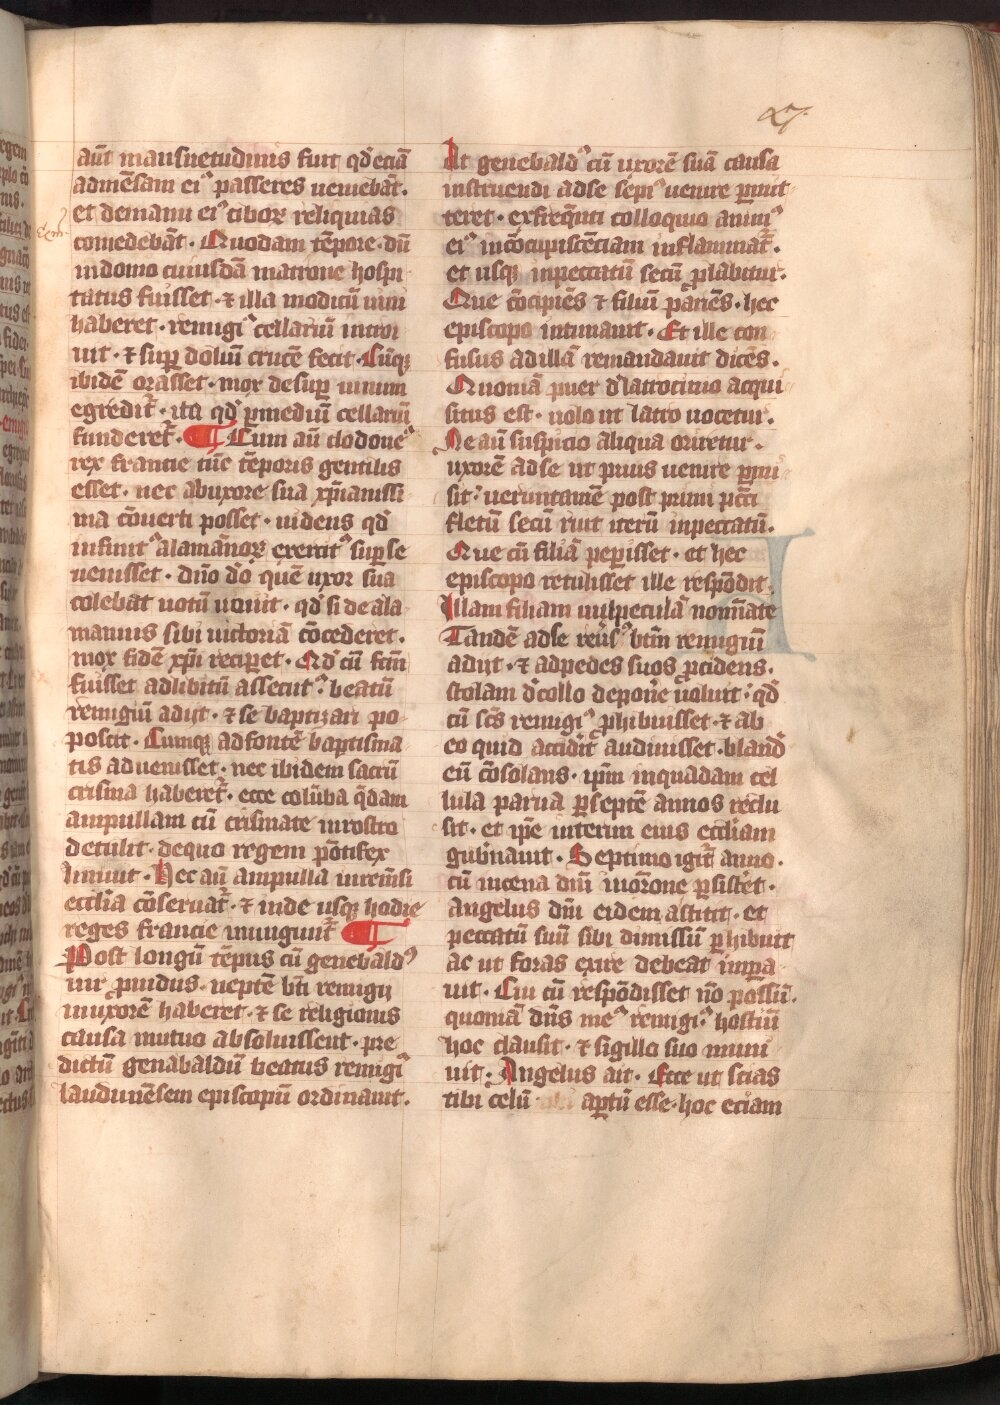 27
aūt mansuetudinis fuit qd̕ eciā
admēsam eiꝰ passeres ueniebāt.
et demanu eiꝰ ciboꝝ reliquias
Exm̄
comedebāt. Quodam tēpore. dū
indomo cuiusdā matrone hospi
tatus fuisset. ⁊ illa modicū uini
haberet. remigiꝰ cellariū introi
uit. ⁊ sup̱ doliū crucē fecit. Cūqꝫ
ibidē orasset. mox desup̱ uinum
egredit᷑. ita qd̕ p̱mediū cellariū
funderet᷑. ¶ Cum aū clodoueꝰ
rex francie tūc tēporis gentilis
esset. nec abuxore sua xp̄ianissi
ma cōuerti posset. uidens qd̕
infinitꝰ alamānoꝝ exercitꝰ sup̱ se
uenisset. dn̄o d̕o quē uxor sua
colebat uotū uouit. qd̕ si de ala
mannis sibi uictoriā cōcederet.
mox fidē xp̄i recip̱et. Qd̕ cū fc̄m
fuisset adlibitū assecutꝰ. beatū
remigiū adijt. ⁊ se baptizari po
poscit. Cumqꝫ adfontē baptisma
tis aduenisset. nec ibidem sacrū
crisma haberet᷑. ecce colūba q̄dam
ampullam cū crismate inrostro
detulit. dequo regem pōtifex
Iniunit. Hec aū ampulla inremēsi
ecclīa cōseruat᷑. ⁊ inde usqꝫ hodie
reges francie inungunt᷑ ¶
Post longū tēpus cū genebaldꝰ
uir ꝓuidus. neptē bt̄i remigij
inuxorē haberet. ⁊ se religionis
causa mutuo absoluissent. pre
dictū genabaldū beatus remigiꝰ
laudunēsem episcopū ordinauit.
At genebaldꝰ cū uxorē suā causa
instruendi adse sepiꝰ uenire p̱mit
teret. exfreq̄nti colloquio animꝰ
eiꝰ incōcupiscēciam inflammat᷑.
et usqꝫ inpeccatū secū ꝓlabitur.
Que cōcipiēs ⁊ filiū pariēs. hec
episcopo intimauit. Et ille con
fusus adillā remandauit dicēs.
Quoniā puer d̕latrocinio acqui
situs est. uolo ut latro uocetur.
Ne aū suspicio aliqua oriretur.
uxorē adse ut prius uenire p̱mi
sit. ueruntamē post primi pc̄c̄i
fletū secū ruit iterū inpeccatū.
Que cū filiā pep̱isset. et hec
episcopo retulisset ille respōdit.
Illam filiam uulpeculā nomīate
Tandē adse reūsꝰ bt̄m remigiū
adijt. ⁊ adpedes suos ꝓcidens.
stolam d̕collo depone uoluit. qd̕
cū sc̄s remigiꝰ ꝓhibuisset. ⁊ ab
eo quid accid̕it audiuisset. bland̕
eū cōsolans. ip̄m inquadam cel
lula parua p̱septē annos reclu
sit. et ip̄e interim eius eccl̄iam
gub̕nauit. Septimo igit᷑ anno.
cū incena dn̄i inor̄one p̱sist̕et.
Angelus dn̄i eidem astitit. et
peccatū suū sibi dimissū p̱hibuit
ac ut foras exire debeat imp̱a
uit. Cui cū respōdisset nō possū.
quoniā dn̄s meꝰ remigiꝰ. hostiū
hoc clausit. ⁊ sigillo suo muni
uit. Angelus ait. Ecce ut scias
tibi celū ap̱tū esse. hoc eciam